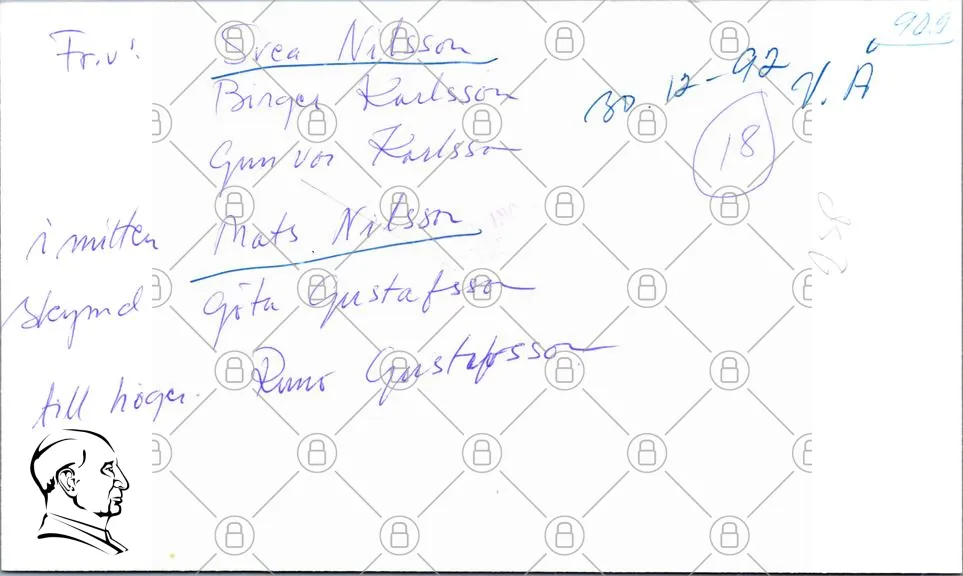 90.9
Fr.v! Svea Nilsson
30.12-92 V. Å
Birger Karlsson
18
Gunvor Karlsson
i mitten Mats Nilsson
skymd Göta Gustafsson
till höger. Rune Gustafsson